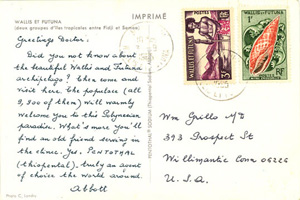 WALLIS ET FUTUNA
(deux groupes d'îles tropicales entre Fidji et Samoa)
IMPRIMÉ
Greetings Doctor:
Did you not know about
the beautiful Wallis and Futuna
archipelago? Then come and
visit here. The populace (all
9,500 of them) will warmly
welcome you to this Polynesian
paradise. What's more you'll
find an old friend serving in
the clinic. Yes, PENTOTHAL
(thiopental), truly an agent
of choice the world around.
Abbott
PENTOTHAL® SODIUM (Thiopental Sodium, Abbott)
POSTES
WALLIS ET FUTUNA
3F
WALLIS ET FUTUNA
1F
Wm Grillo MD
393 Prospect St
Willimantic Conn 06226
U.S.A.